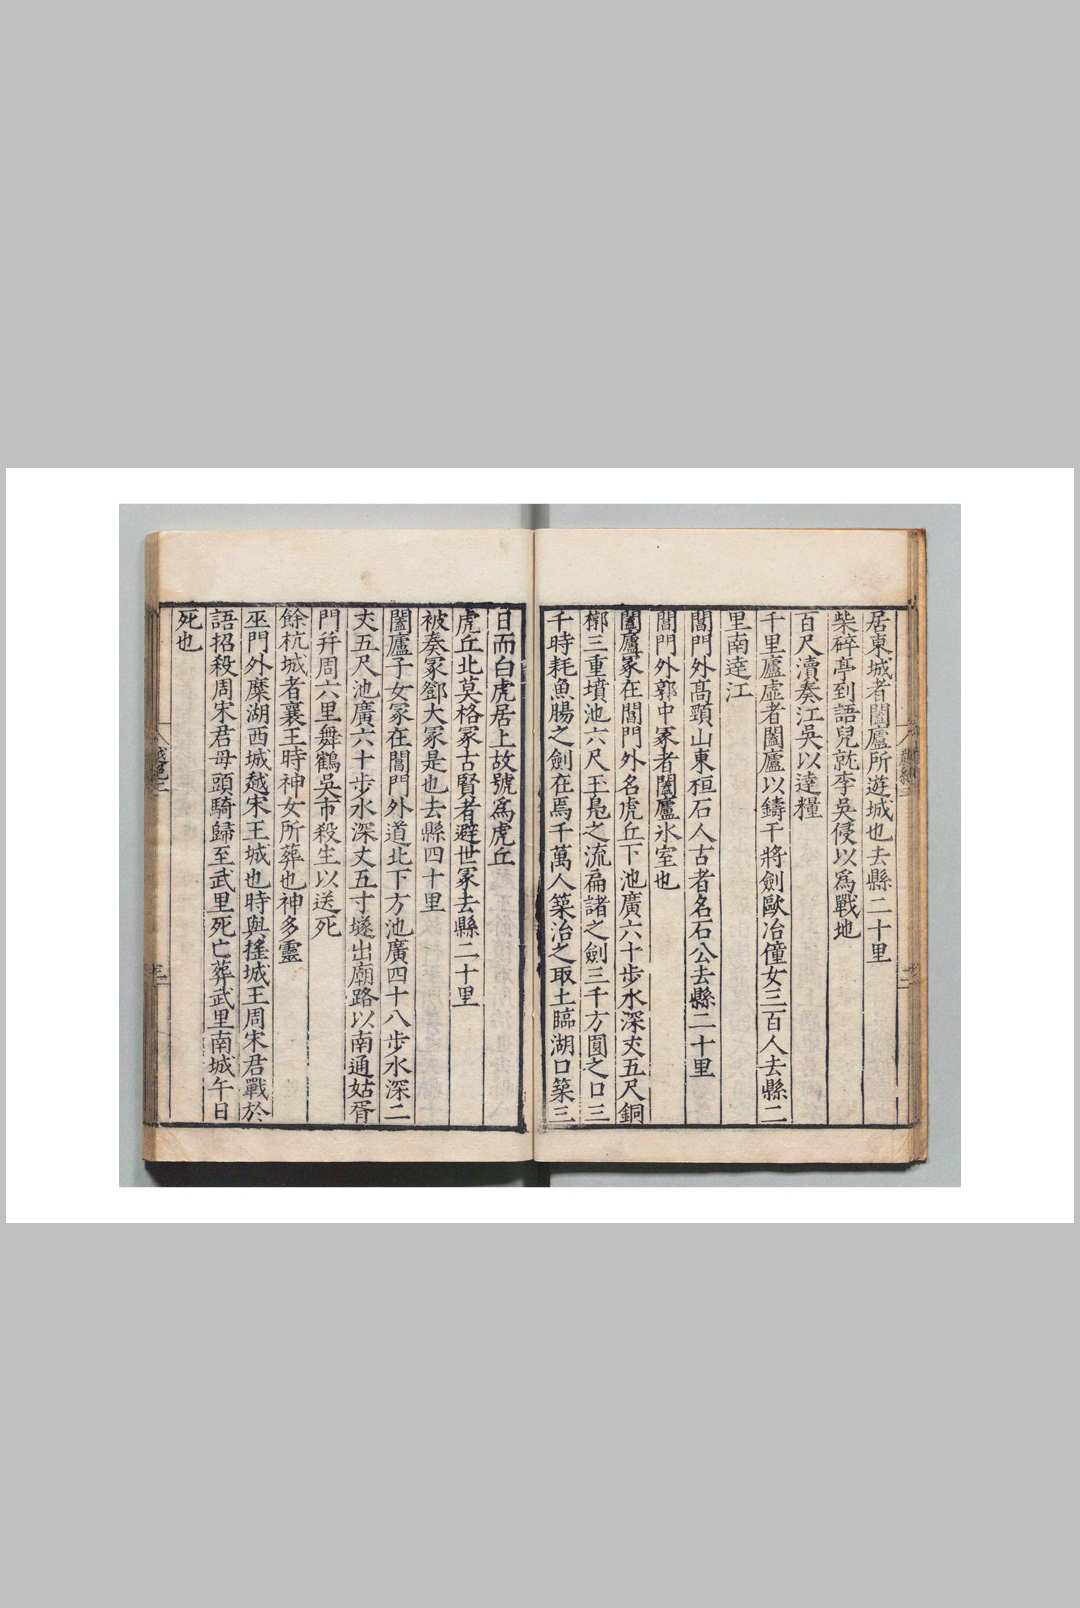 居東城者闔廬所遊城也去縣二十里
柴碎亭到語兒就李吳侵以爲戰地
百尺瀆奏江吳以達糧
千里廬虛者闔廬以鑄干將劍歐冶僮女三百人去縣二
里南達江
閶門外髙頸山東桓石人古者名石公去縣二十里
閶門外郭中冢者闔廬氷室也
闔廬冢在閶門外名虎丘下池廣六十步水深丈五尺銅
槨三重墳池六尺玉鳬之流扁諸之劍三千方圓之口三
千時耗魚腸之劍在焉千萬人築治之取土臨湖口築三
日而白虎居上故號爲虎丘
虎丘北莫格冢古賢者避世冢去縣二十里
被奏冢鄧大冢是也去縣四十里
闔廬子女冢在閶門外道北下方池廣四十八步水深二
丈五尺池廣六十步水深丈五寸墜出廟路以南通姑胥
門并周六里舞鶴吳市殺生以送死
餘杭城者襄王時神女所葬也神多靈
巫門外麋湖西城越宋王城也時與搖城王周宋君戰於
語招殺周宋君毋頭騎歸至武里死亡葬武里南城午日
死也